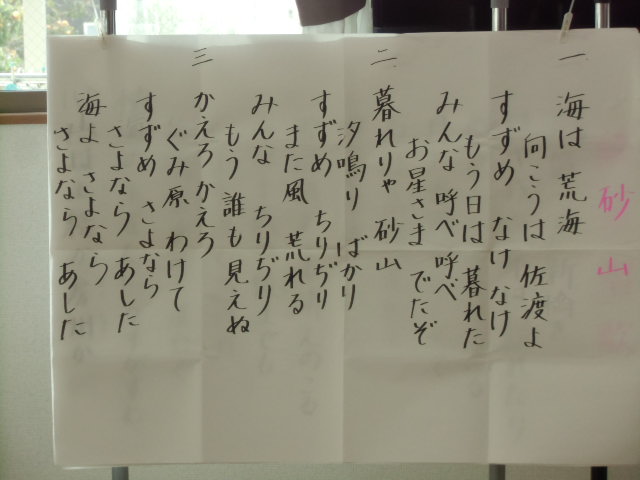 砂山
一 海は 荒海
向こうは 佐渡よ
すずめ なけ なけ
もう日は 暮れた
みんな 呼べ 呼べ
お星さま でたぞ
二 暮れりゃ 砂山
汐鳴り ばかり
すずめ ちりぢり
また風 荒れる
みんな ちりぢり
もう 誰も 見えぬ
三 かえろ かえろ
ぐみ原 わけて
すずめ さよなら
さよなら あした
海よ さよなら
さよなら あした